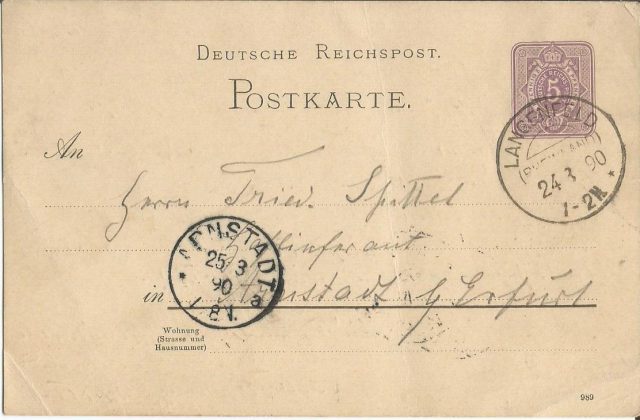 DEUTSCHE REICHSPOST.
POSTKARTE.
5
LANGENFELD
(RHEINLAND)
24 3 90
1-2N
An
Herrn Fried. Spittel
Hoflieferant
ARNSTADT
25 3
90
8 V.
a
in Arnstadt b/ Erfurt
Wohnung
(Strasse und
Hausnummer)
989